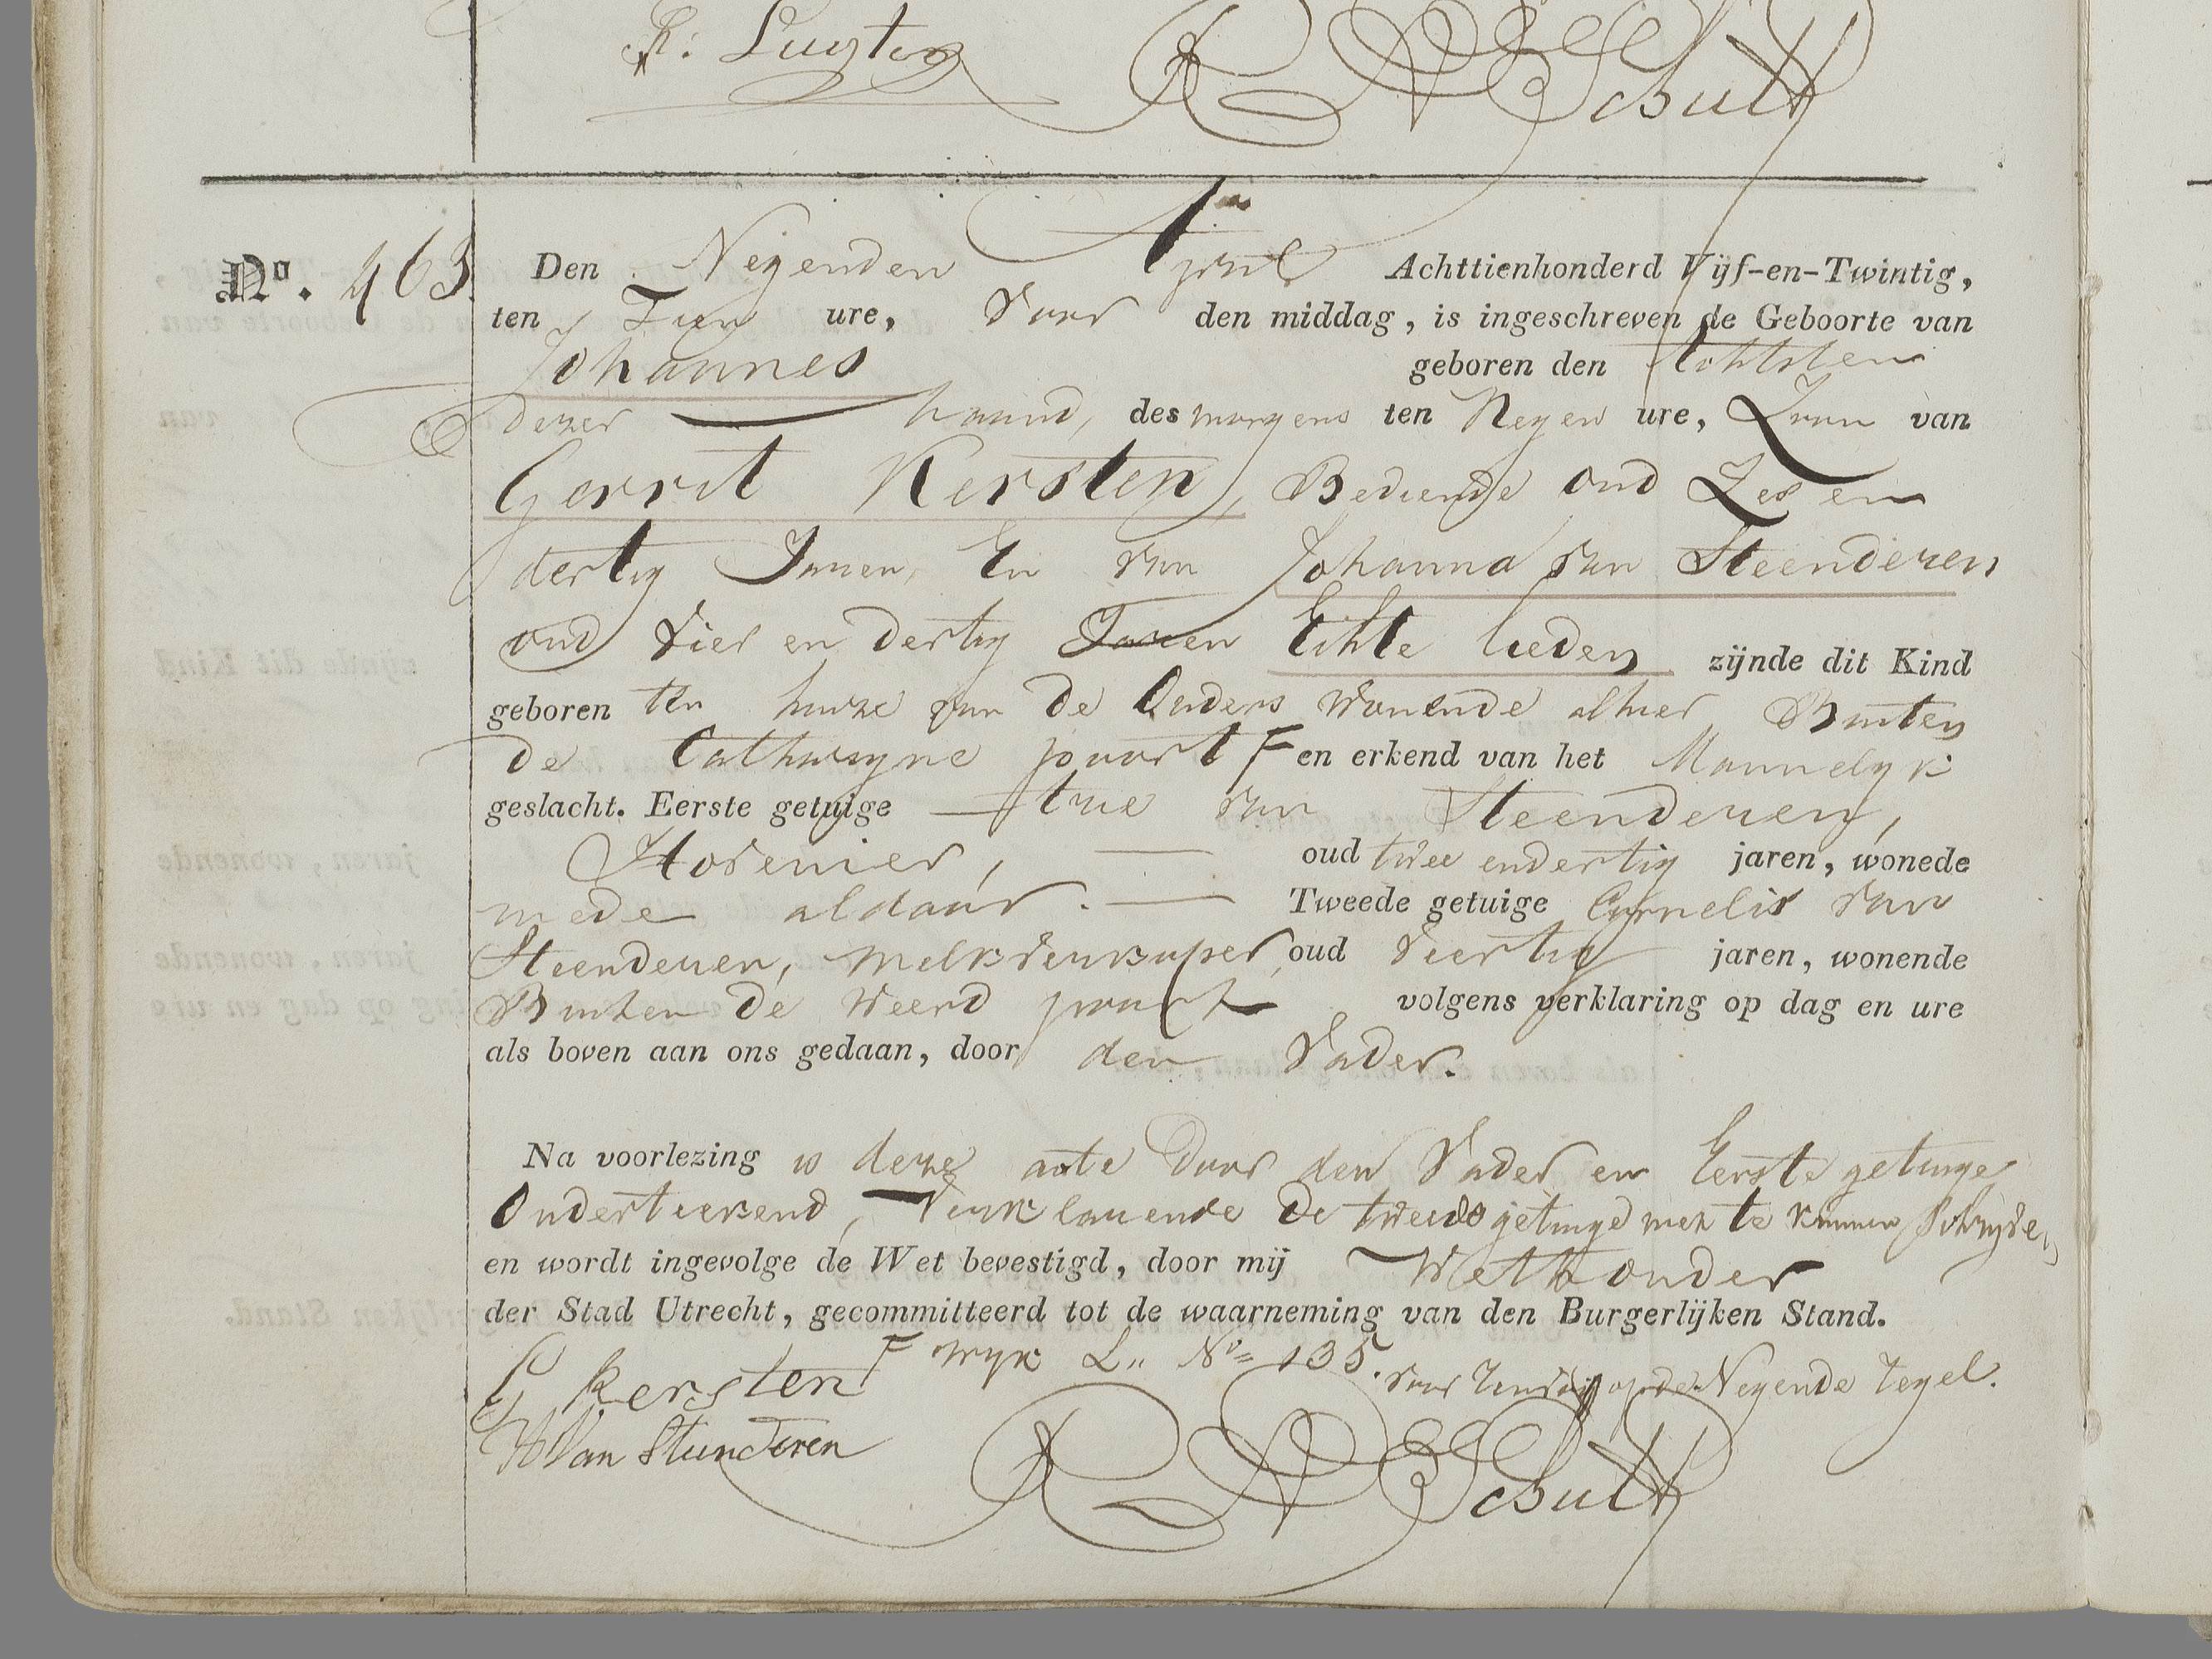 R. A. Schult
No. 463.
Den Negenden April Achttienhonderd Vijf-en-Twintig,
ten Tien ure, Voor den middag, is ingeschreven de Geboorte van
Johannes geboren den Achtsten
dezer maand, des morgens ten Negen ure, Zoon van
Gerrit Kersten, Bediende oud Zes en
dertig Jaren, En van Johanna van Steenderen
oud Vier en dertig Jaren Echte lieden zijnde dit Kind
geboren ten huize van de Ouders wonende alhier Buiten
de Catharyne poort F en erkend van het Mannelyk
geslacht. Eerste getuige van Steenderen,
Hovenier, oud twee en dertig jaren, wonede
mede aldaar. Tweede getuige Cornelis van
Steenderen, melkverkoper, oud Veertig jaren, wonende
Buiten de Weerd poort volgens verklaring op dag en ure
als boven aan ons gedaan, door den Vader.
Na voorlezing is deze acte door den Vader en Eerste getuige
Onderteekend, Verklarende De tweede getuige niet te kunnen Schryven
en wordt ingevolge de Wet bevestigd, door mij Wethouder
der Stad Utrecht, gecommitteerd tot de waarneming van den Burgerlijken Stand.
F Wyk L. No 135. op de Negende regel.
G Kersten
H Van Steenderen
R. A. Schult